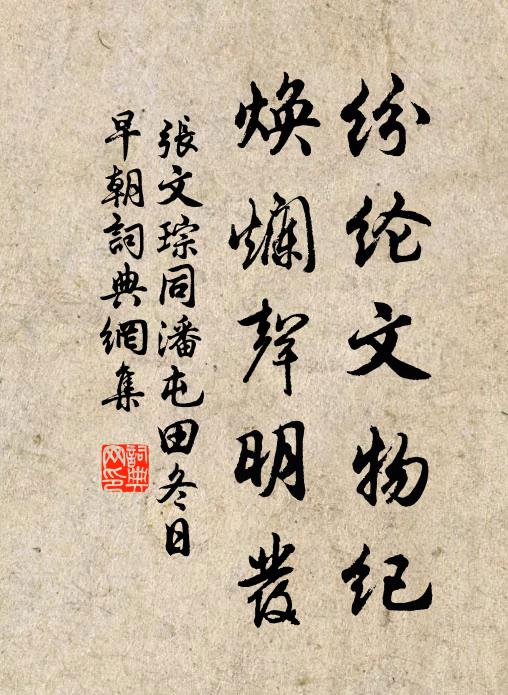 纷纶文物纪
焕烂声明发
張文琮同潘屯田冬日
早朝詞典網集
詞典网印